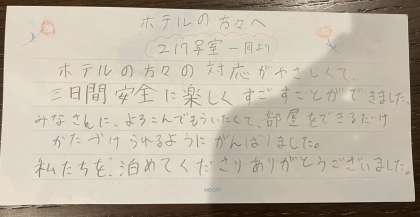 ホテルの方々へ
217号室一同より
ホテルの方々の対応がやさしくて、
三日間安全に楽しくすごすことができました。
みなさんに、よろこんでもらいたくて、部屋をできるだけ
かたづけられるようにがんばりました。
私たちを、泊めてくださりありがとうございました。